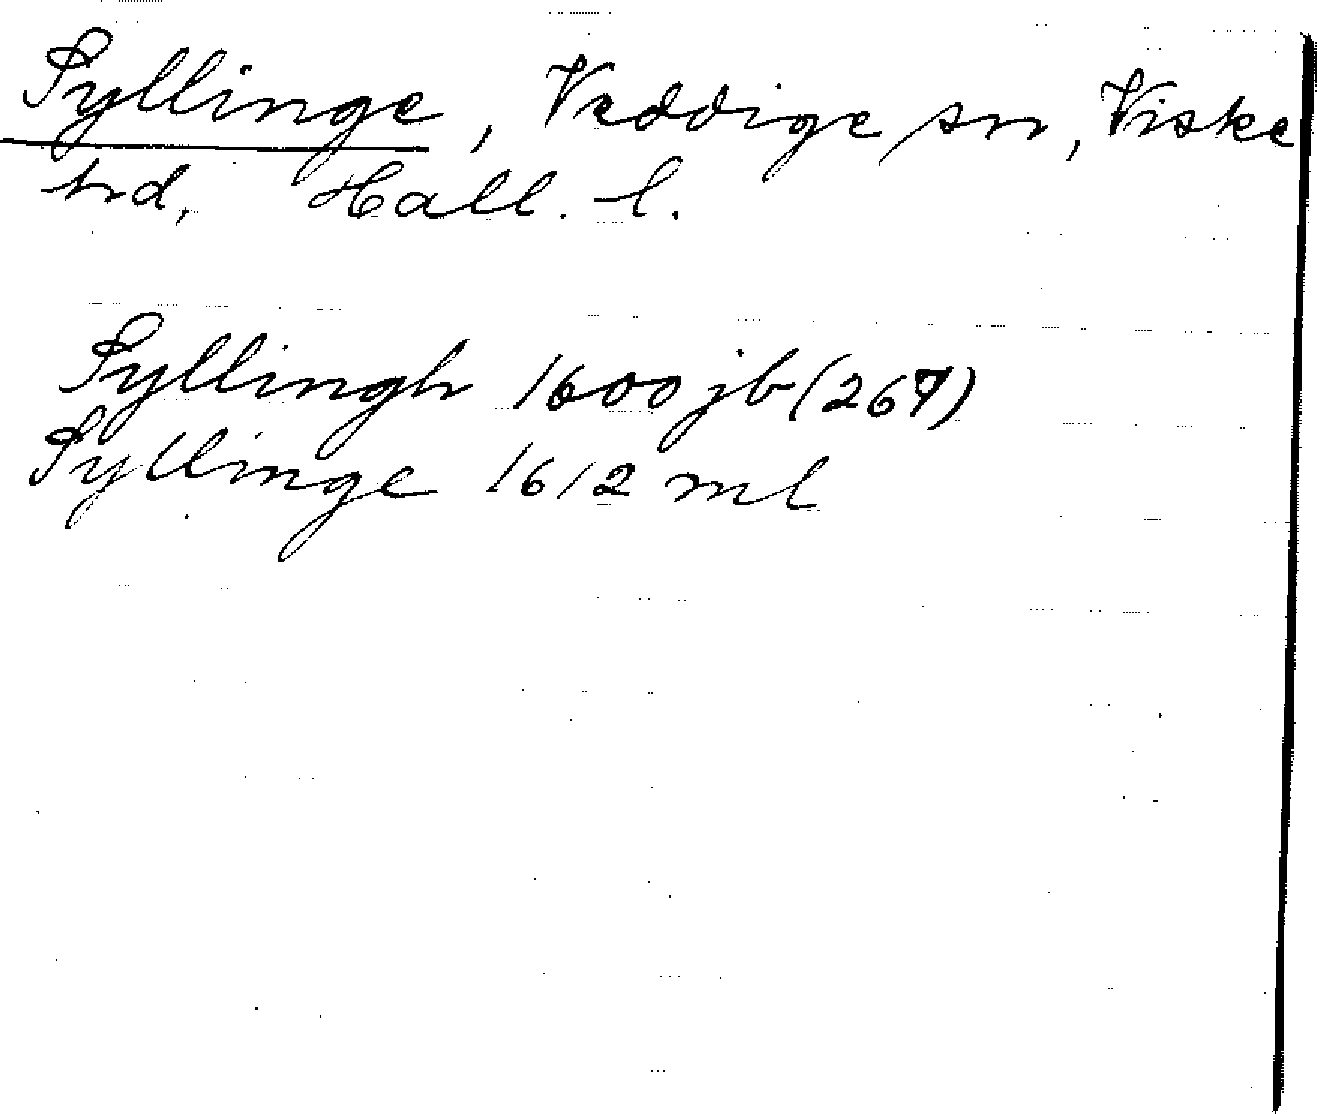 Syllinge, Veddige sn, Viske
hd, Hall. l.
Syllingh 1600 jb (267)
Syllinge 1612 ml